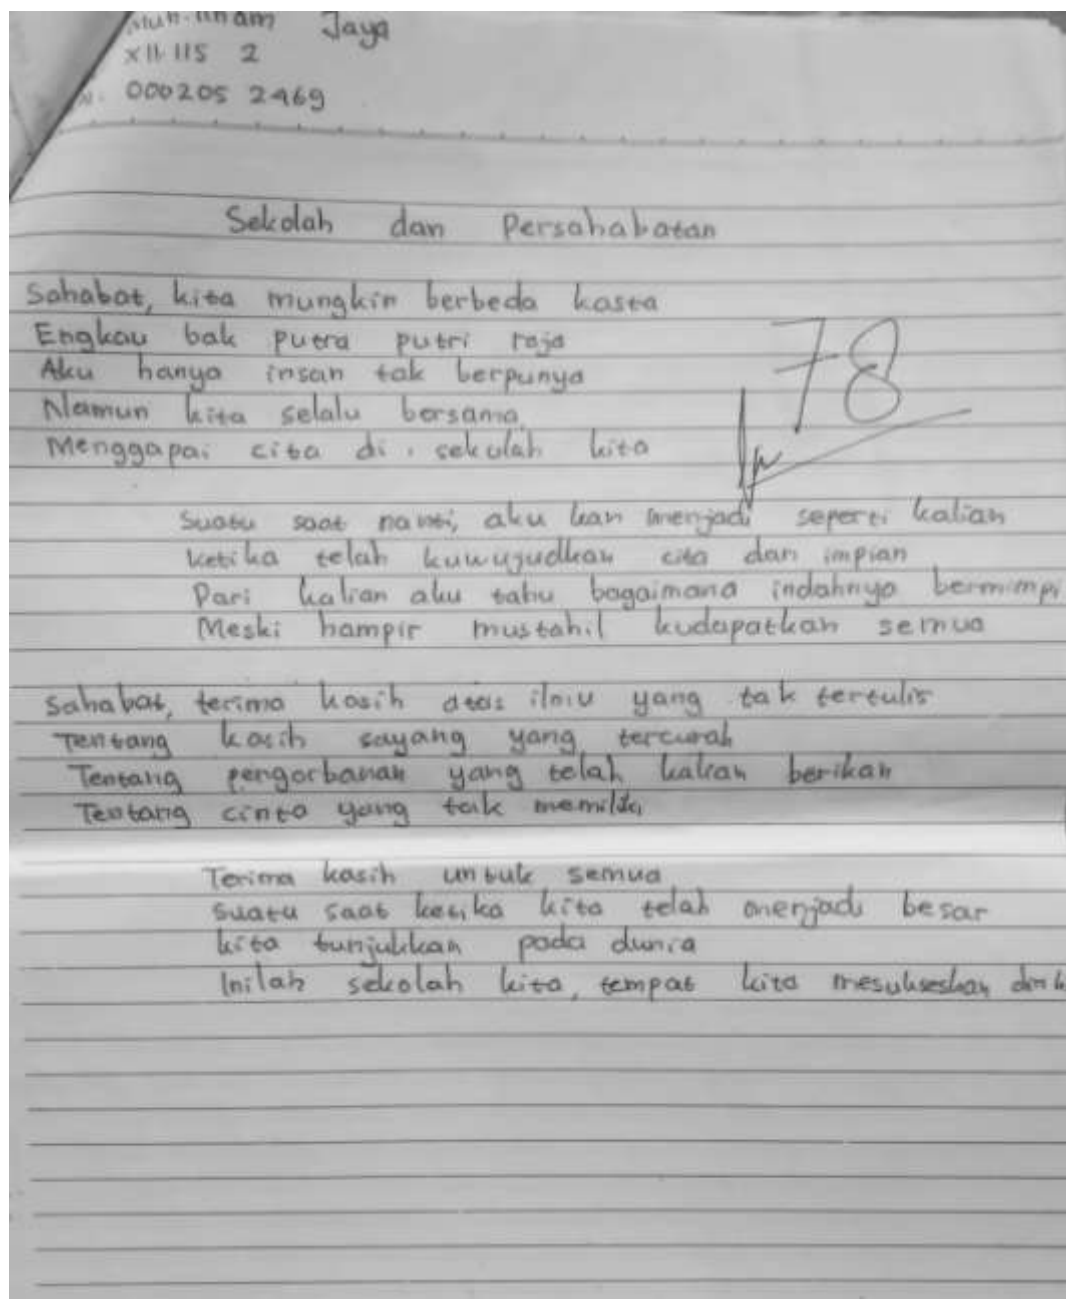 Muh. Ilham Jaya
XII IIS 2
000205 2469
Sekolah dan Persahabatan
Sahabat, kita mungkin berbeda kasta
Engkau bak putra putri raja
Aku hanya insan tak berpunya
Namun kita selalu bersama
Menggapai cita di sekolah kita
78
Suatu saat nanti, aku kan menjadi seperti kalian
ketika telah kuwujudkan cita dan impian
Dari kalian aku tahu bagaimana indahnya bermimpi
Meski hampir mustahil kudapatkan semua
Sahabat, terima kasih atas ilmu yang tak tertulis
Tentang kasih sayang yang tercurah
Tentang pengorbanan yang telah kalian berikan
Tentang cinta yang tak memiliki
Terima kasih untuk semua
Suatu saat ketika kita telah menjadi besar
kita tunjukkan pada dunia
Inilah sekolah kita, tempat kita mesukseskan